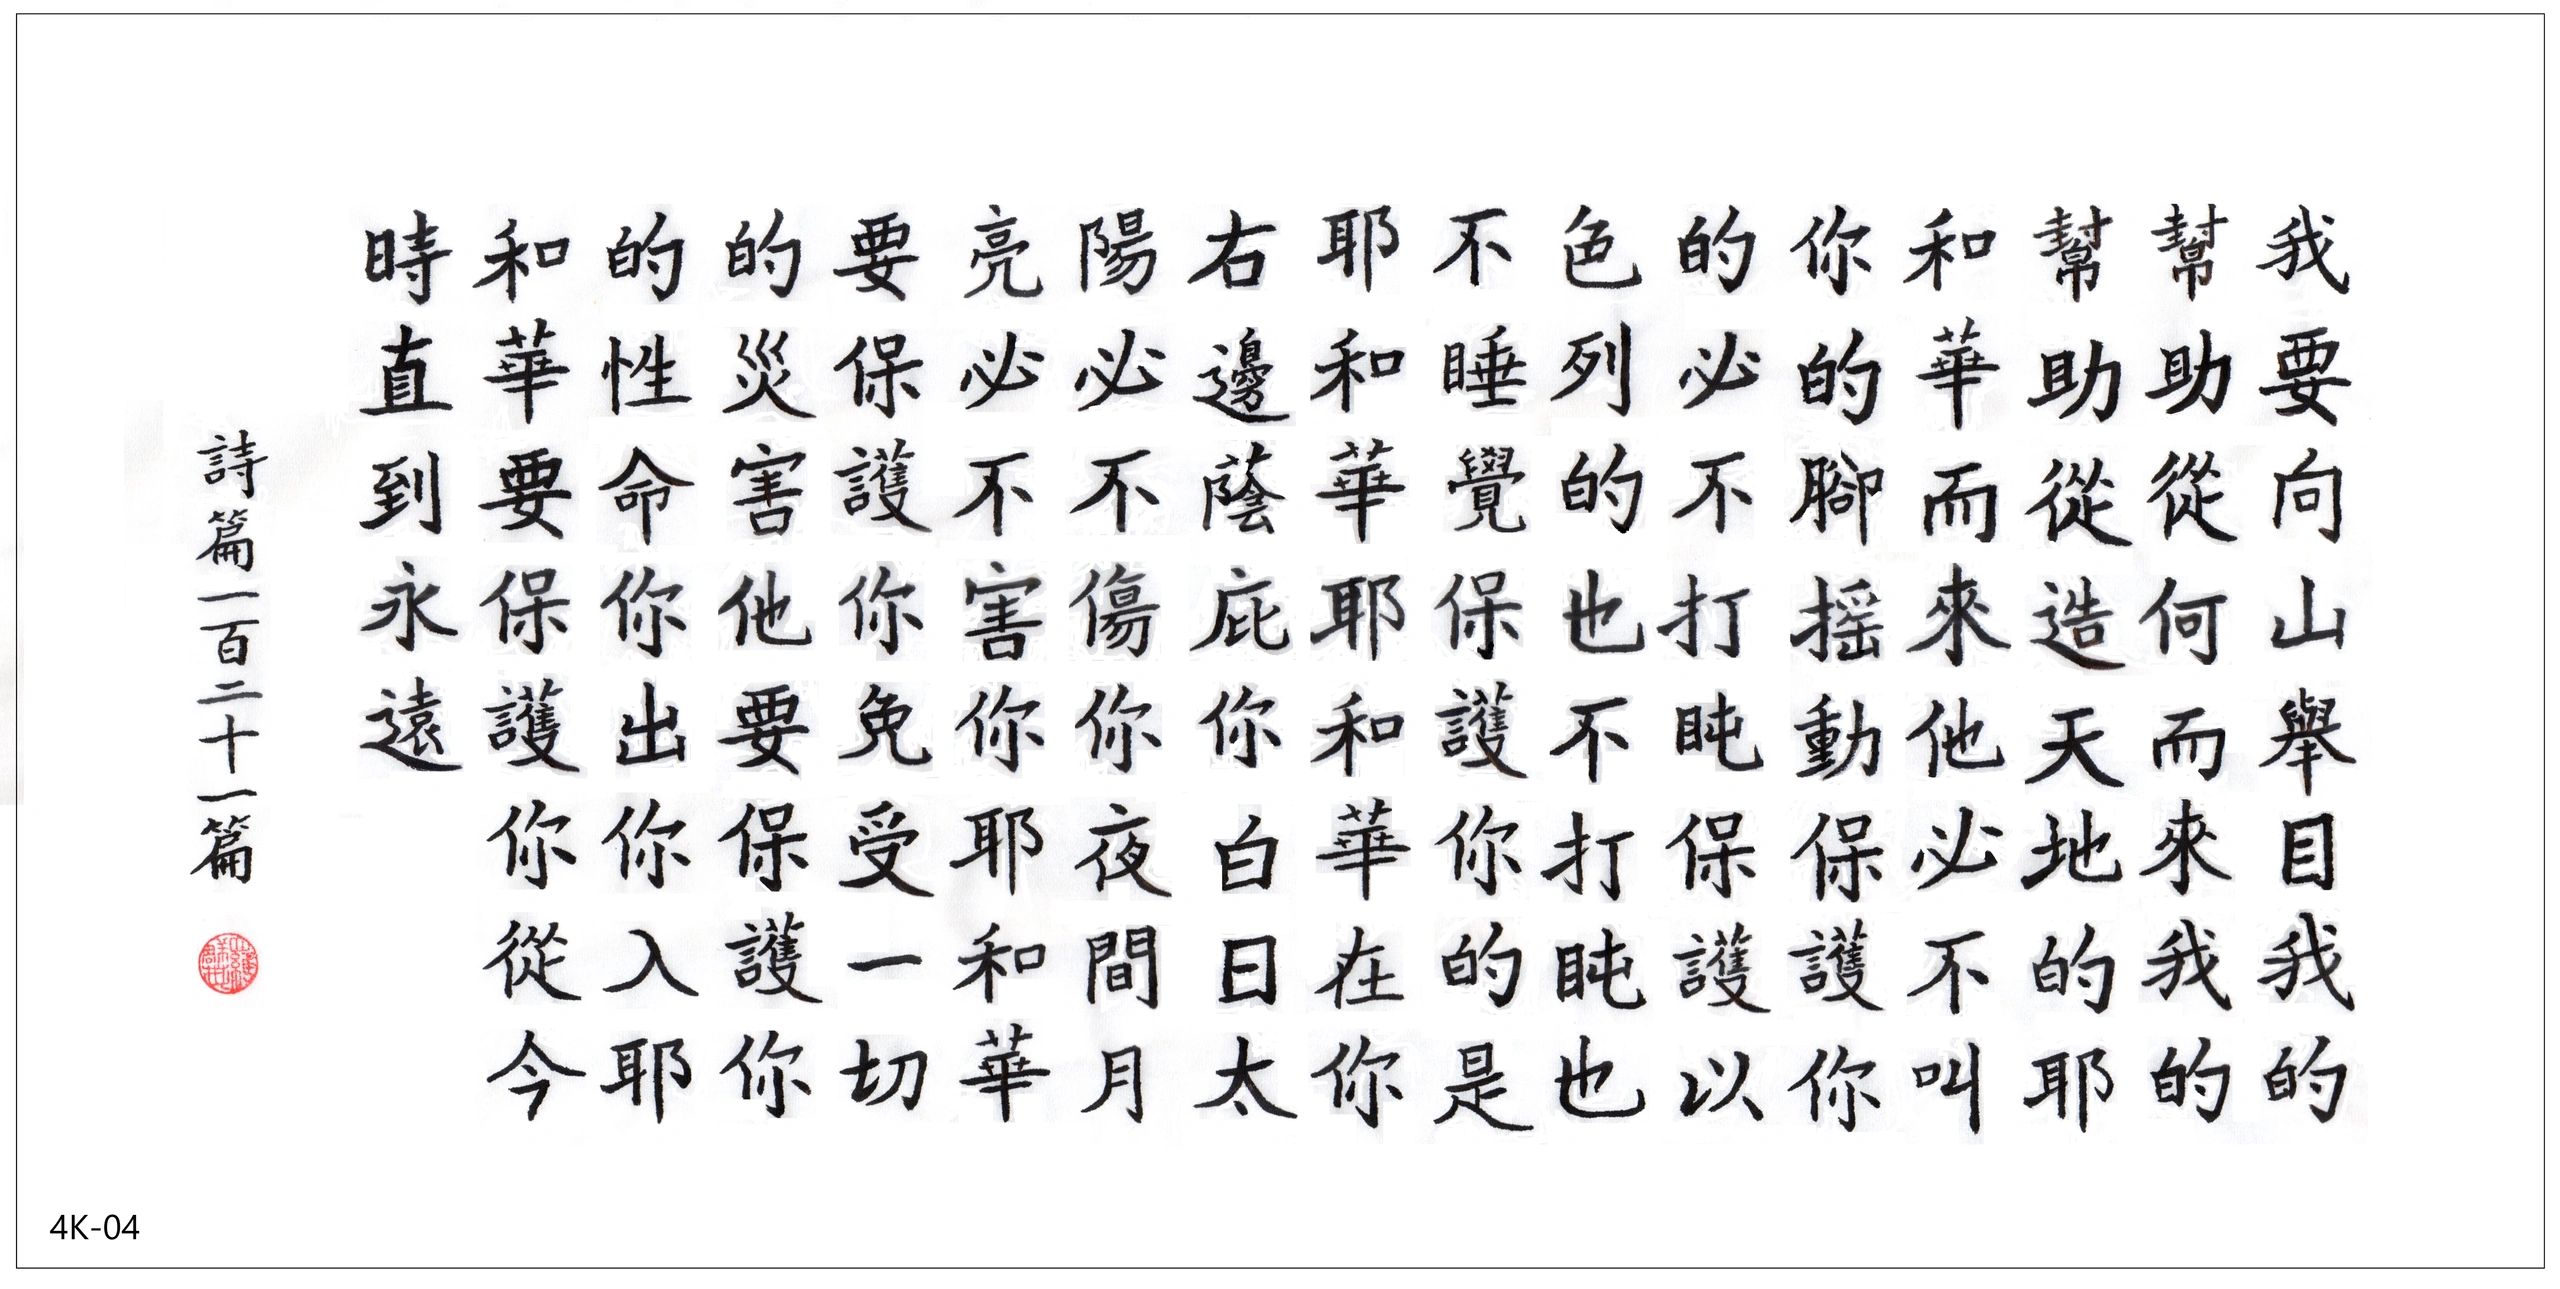 我要向山舉目我的
幫助從何而來我的
幫助從造天地的耶
和華而來他必不叫
你的腳搖動保護你
的必不打盹保護以
色列的也不打盹也
不睡覺保護你的是
耶和華耶和華在你
右邊蔭庇你白日太
陽必不傷你夜間月
亮必不害你耶和華
要保護你免受一切
的災害他要保護你
的性命你出你入耶
和華要保護你從今
時直到永遠
詩篇一百二十一篇
4K-04